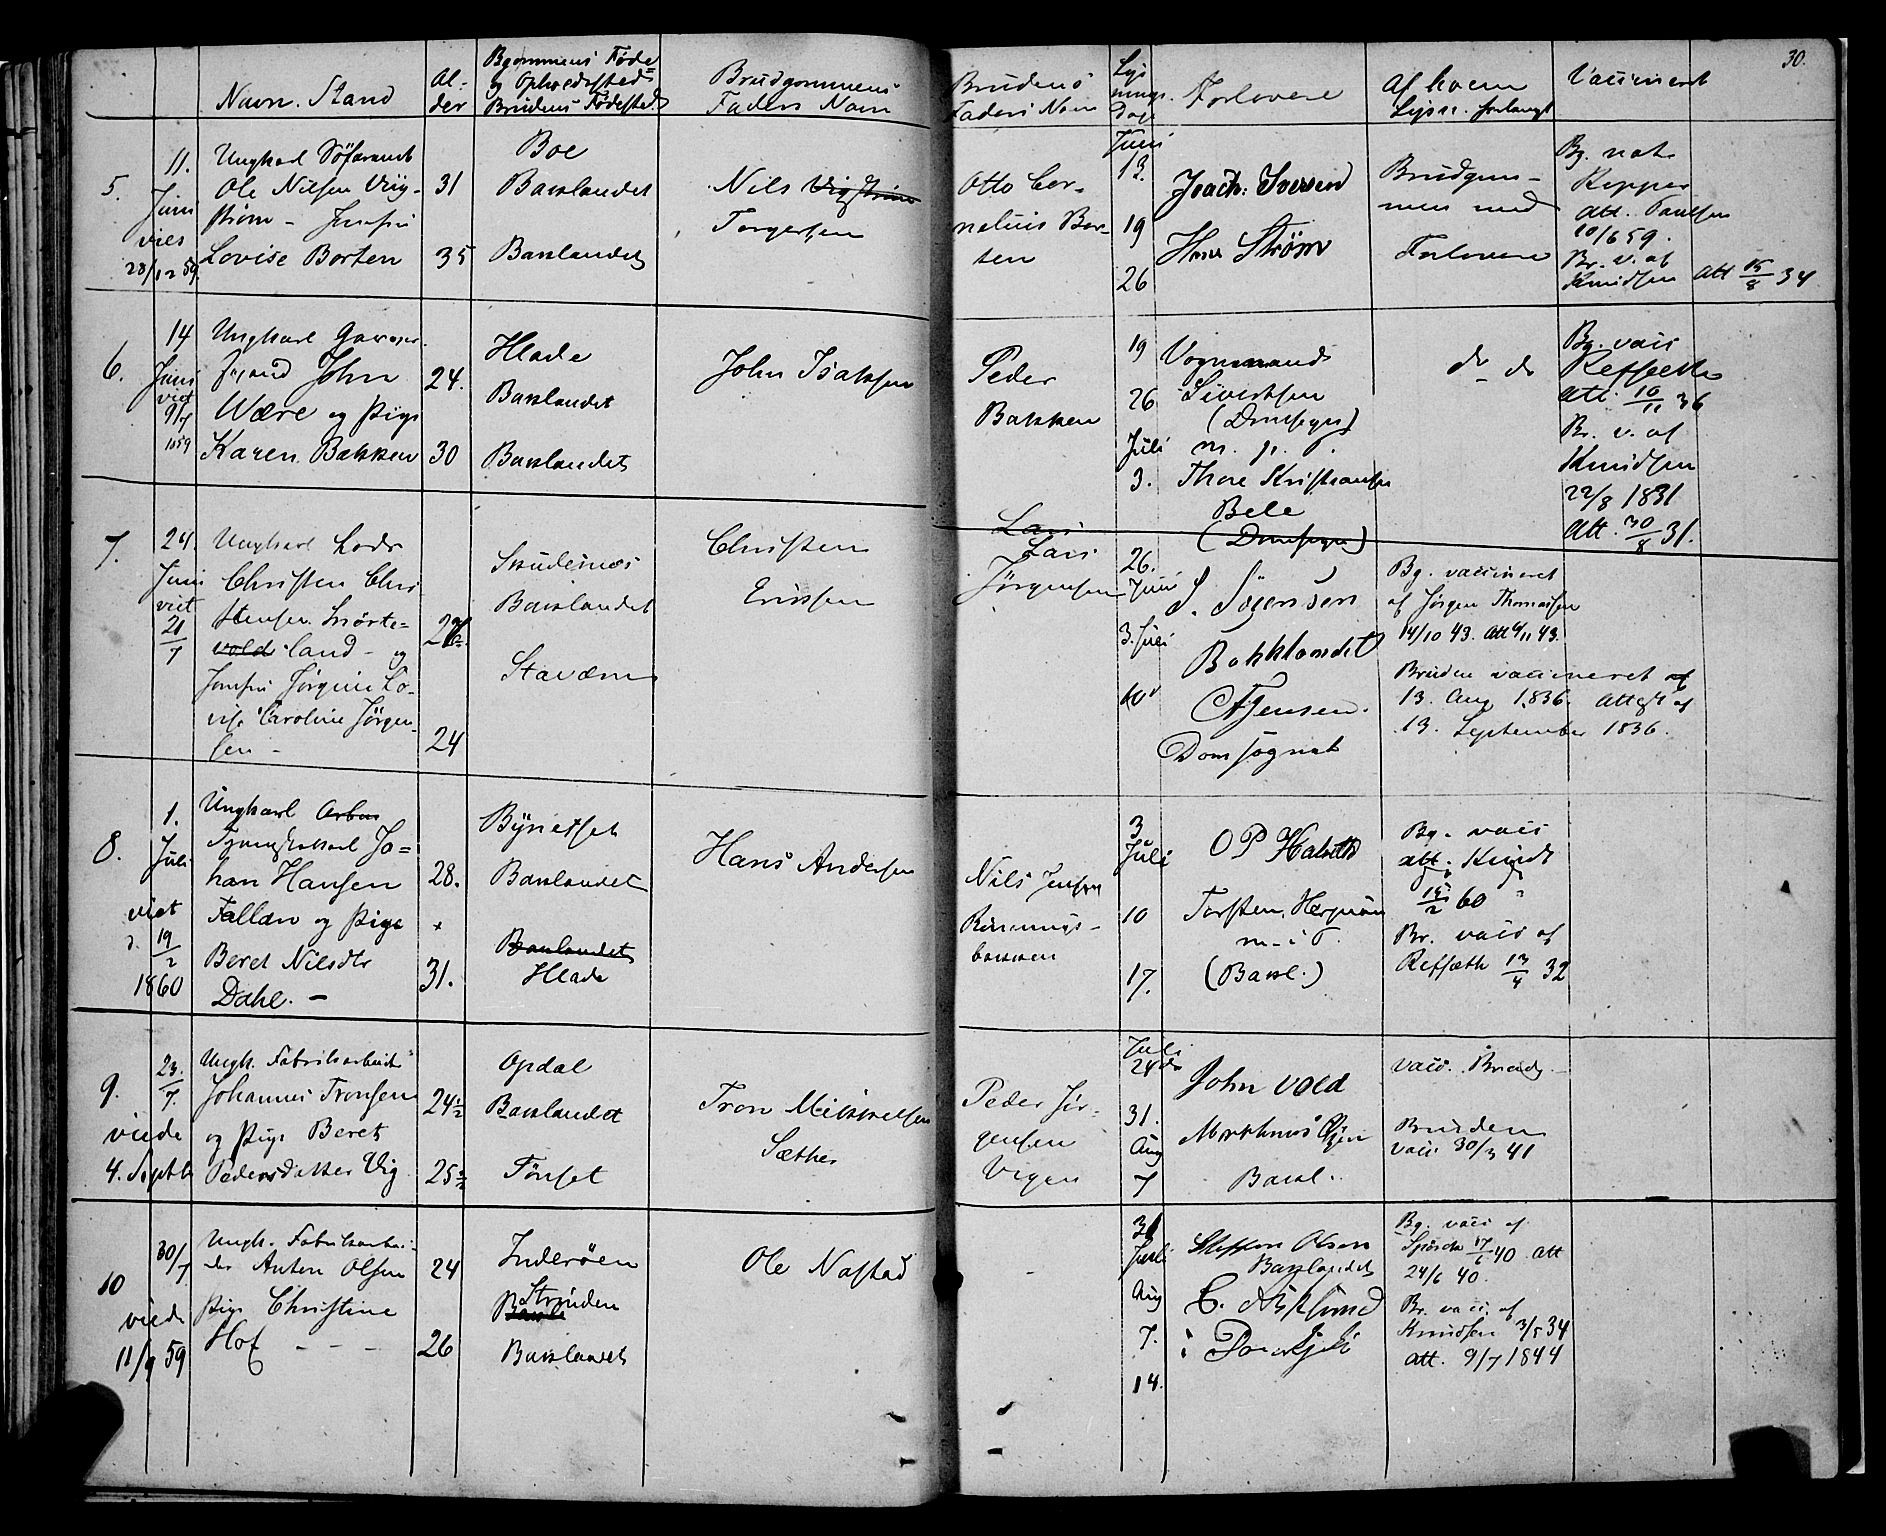 30.
Navn. Stand
Al-
der
Bgommens Føde
og Opholdssteds
Brudens Fødested
Brudgommens
Faders Navn
Brudens
Faders Navn
Lys
nings
Dage
Forlovere
Af hvem
Lysn. forlangt
Vaccineret
5.
11.
Juni
viet
28/12 59.
Ungkarl
Ole Nilsen
strøm - Jomfru
Lovise Borten
31
35
Boe
Baklandet
Baklandet
Nils
Torgersen
Otto Cor-
nelius Bor-
ten
Juni
12.
19
26
Joach: Iversen
Strøm
Brudgom-
men med
Forlovere
Bg. nat.
Kopper
Att. Paulsen
10/6 59.
Br. v. af
Knudsen Att 15/8 34
6.
14
Juni
viet
9/7
1859
Ungkarl
John
Wære og Pige
Karen Bakken
24.
30
Hlade
Baklandet
Baklandet
John Isaksen
Peder
Bakken
19
26
Juli
3.
Vognmand
Sivertsen
(Domsogn)
m. p. P.
Thore Kristiansen
Bele
(Domsogn)
do do
Bg. vacc
Refsæth
Att. 10/11 36
Br. v. af
Knudsen
22/8 1831
Att. 30/8 31.
7.
24.
Juni
viet
21/7
Ungkarl Lods
Christen Chri
stensen Snørte-
vold land - og
Jomfru Jørgine Lo-
vise Caroline Jørgen-
sen -
24
Skudesnes
Baklandet
Stavern
Christen
Eriksen
Lars
Lars
Jørgensen
26.
Juni
3. Juli
10
Bakklandet
Jensen.
Domsognet
Bg. vaccineret
af Jørgen Thomassen
14/10 43. Att 4/11 43.
Bruden vaccineret af
13. Aug 1836. Attest af
13. September 1836.
8.
1.
Juli
viet
d. 19/2
1860
Ungkarl Arbei
Jo=
han Hansen
Fallan og Pige
Beret Nilsdtr
Dahl. -
28.
31.
Bynesset
Baklandet
Baklandet
Hlade
Hans Andersen
Nils Jensen
Rønnings-
bakken
3
Juli
10
17.
O P Halseth
Torsten
m. i P.
(Bakl.)
Bg. vacc
att. Knudt
15/2 60
Br. vacc af
Refsæth 13/4 32
9.
23/7
viede
4. Septb
Ungk. Fabrikarbeid
Johannes Tronsen
og Pige Beret
Pedersdatter Vig
24½
25½
Opdal
Baklandet
Tønset
Tron Mikkelsen
Sæther
Peder Jør-
gensen
Vigen
Juli
24de
31.
Aug
7
John Vold
Bakl.
vacc.
Bruden
vacc 30/3 41
10
30/7
viede
11/9 59
Ungk. Fabrikarbei-
der Anton Olsen
Pige Christine
Hof - - -
24
26
Inderøen
Strinden
Baklandet
Ole Nastad
-
31
Juli
Aug
7.
14.
Steffen Olsen
Baklandet
Bg. vacc af
17/6 40. Att
24/6 40.
Br. vacc. af
Knudsen 3/5 34
Att. 9/7 1844